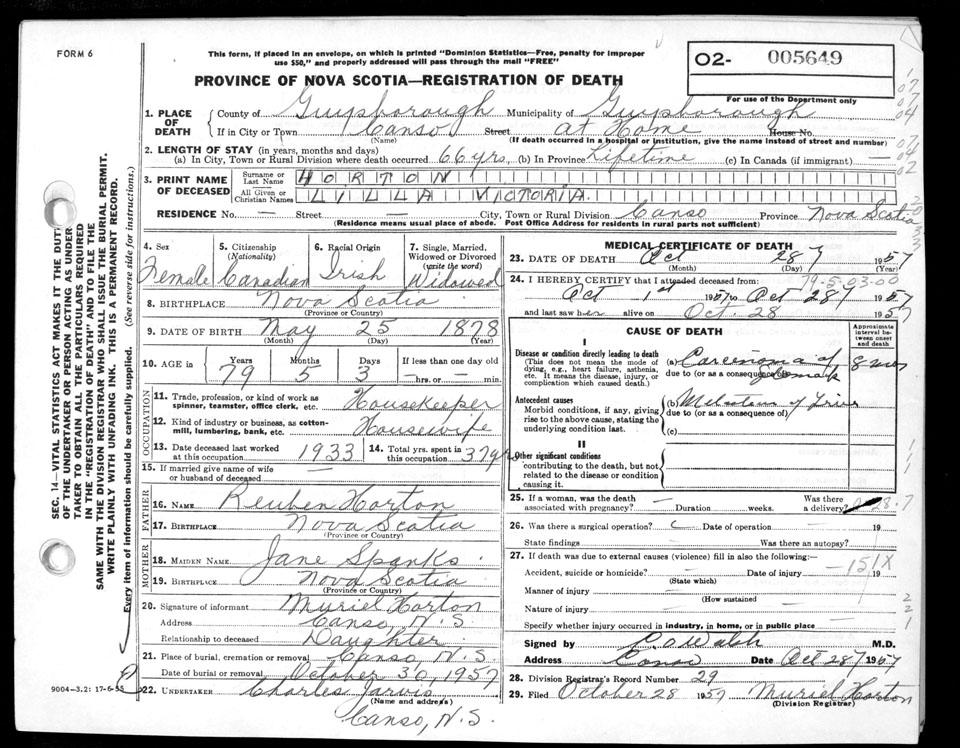 FORM 6
This form, if placed in an envelope, on which is printed "Dominion Statistics—Free, penalty for improper
use $50," and properly addressed will pass through the mail "FREE"
PROVINCE OF NOVA SCOTIA—REGISTRATION OF DEATH
02- 005649
For use of the Department only
SEC. 14—VITAL STATISTICS ACT MAKES IT THE DUTY
OF THE UNDERTAKER OR PERSON ACTING AS UNDER-
TAKER TO OBTAIN ALL THE PARTICULARS REQUIRED
IN THE "REGISTRATION OF DEATH" AND TO FILE THE
SAME WITH THE DIVISION REGISTRAR WHO SHALL ISSUE THE BURIAL PERMIT.
WRITE PLAINLY WITH UNFADING INK. THIS IS A PERMANENT RECORD.
Every item of information should be carefully supplied. (See reverse side for instructions.)
1. PLACE OF DEATH County of Guysborough Municipality of Guysborough
If in City or Town Canso Street at Home House No.
(Name) (If death occurred in a hospital or institution, give the name instead of street and number)
2. LENGTH OF STAY (in years, months and days)
(a) In City, Town or Rural Division where death occurred 66 yrs, (b) In Province Lifetime (c) In Canada (if immigrant) —
3. PRINT NAME OF DECEASED Surname or Last Name HORTON
All Given or Christian Names LILLA VICTORIA.
RESIDENCE No. — Street — City, Town or Rural Division Canso Province Nova Scotia
(Residence means usual place of abode. Post Office Address for residents in rural parts not sufficient)
4. Sex Female
5. Citizenship (Nationality) Canadian
6. Racial Origin Irish
7. Single, Married, Widowed or Divorced (write the word) Widowed
8. BIRTHPLACE Nova Scotia
(Province or Country)
9. DATE OF BIRTH May 25 1878
(Month) (Day) (Year)
10. AGE in Years 79 Months 5 Days 3 If less than one day old — hrs. or — min.
OCCUPATION
11. Trade, profession, or kind of work as spinner, teamster, office clerk, etc. Housekeeper
12. Kind of industry or business, as cotton-mill, lumbering, bank, etc. Housewife
13. Date deceased last worked at this occupation 1933
14. Total yrs. spent in this occupation 37 yrs
15. If married give name of wife or husband of deceased —
FATHER
16. NAME Reuben Horton
17. BIRTHPLACE Nova Scotia
(Province or Country)
MOTHER
18. MAIDEN NAME Jane Spanks
19. BIRTHPLACE Nova Scotia
(Province or Country)
20. Signature of informant Muriel Horton
Address Canso, N.S.
Relationship to deceased Daughter
21. Place of burial, cremation or removal Canso, N.S.
Date of burial or removal October 30, 1957
22. UNDERTAKER Charles Jarvis
(Name and address)
Canso, N.S.
9004-3.2: 17-6-55
MEDICAL CERTIFICATE OF DEATH
23. DATE OF DEATH Oct 28 1957
(Month) (Day) (Year)
24. I HEREBY CERTIFY that I attended deceased from: 79-5-03-00
Oct 1st 1957 to Oct 28 1957
and last saw her alive on Oct. 28 1957
CAUSE OF DEATH
Approximate interval between onset and death
I
Disease or condition directly leading to death
(This does not mean the mode of dying, e.g., heart failure, asthenia, etc. It means the disease, injury, or complication which caused death.)
(a) Carcinoma of Stomach 8 mos
due to (or as a consequence of)
Antecedent causes
Morbid conditions, if any, giving rise to above cause, stating the underlying condition last.
(b) of Liver
due to (or as a consequence of)
(c)
II
Other significant conditions
contributing to the death, but not related to the disease or condition causing it.
25. If a woman, was the death associated with pregnancy? — Duration weeks. Was there a delivery?
26. Was there a surgical operation? Date of operation 19
State findings — Was there an autopsy?
27. If death was due to external causes (violence) fill in also the following:—
Accident, suicide or homicide? — Date of injury — 151X 19
(State which)
Manner of injury —
(How sustained)
Nature of injury —
Specify whether injury occurred in industry, in home, or in public place —
Signed by Walsh M.D.
Address Canso Date Oct 28 1957
28. Division Registrar's Record Number 29
29. Filed October 28 1957 Muriel Horton
(Division Registrar)